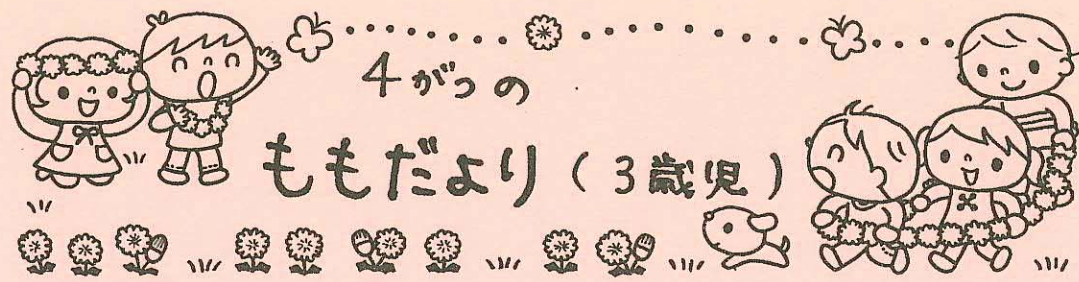 4がつの
ももだより（3歳児）